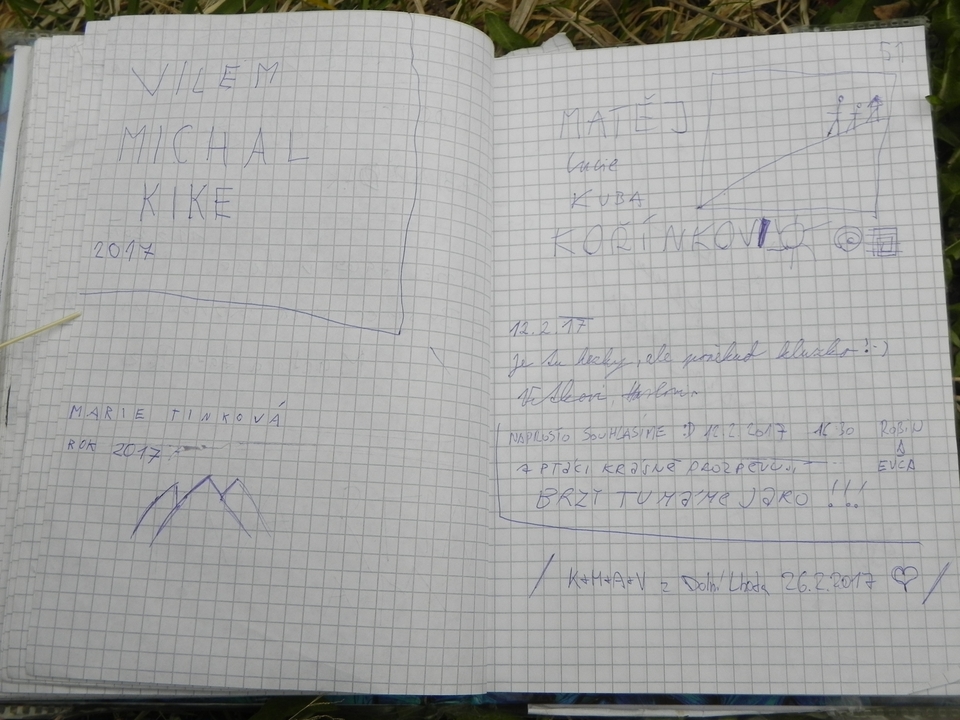 VILEM
MICHAL
KIKE
2017
MARIE TINKOVÁ
ROK 2017
51
MATĚJ
Lucie
KUBA
KOŘÍNKOVI
12.2.17
Je tu hezky, ale
NAPROSTO SOUHLASÍME :D 12.2.2017 16:30 ROBIN
A
EVČA
A PTÁCI KRÁSNĚ PROZPĚVUJÍ
BRZY TU MÁME JARO !!!
/ K+H+A+V z Dolní Lhota 26.2.2017 ♡ /